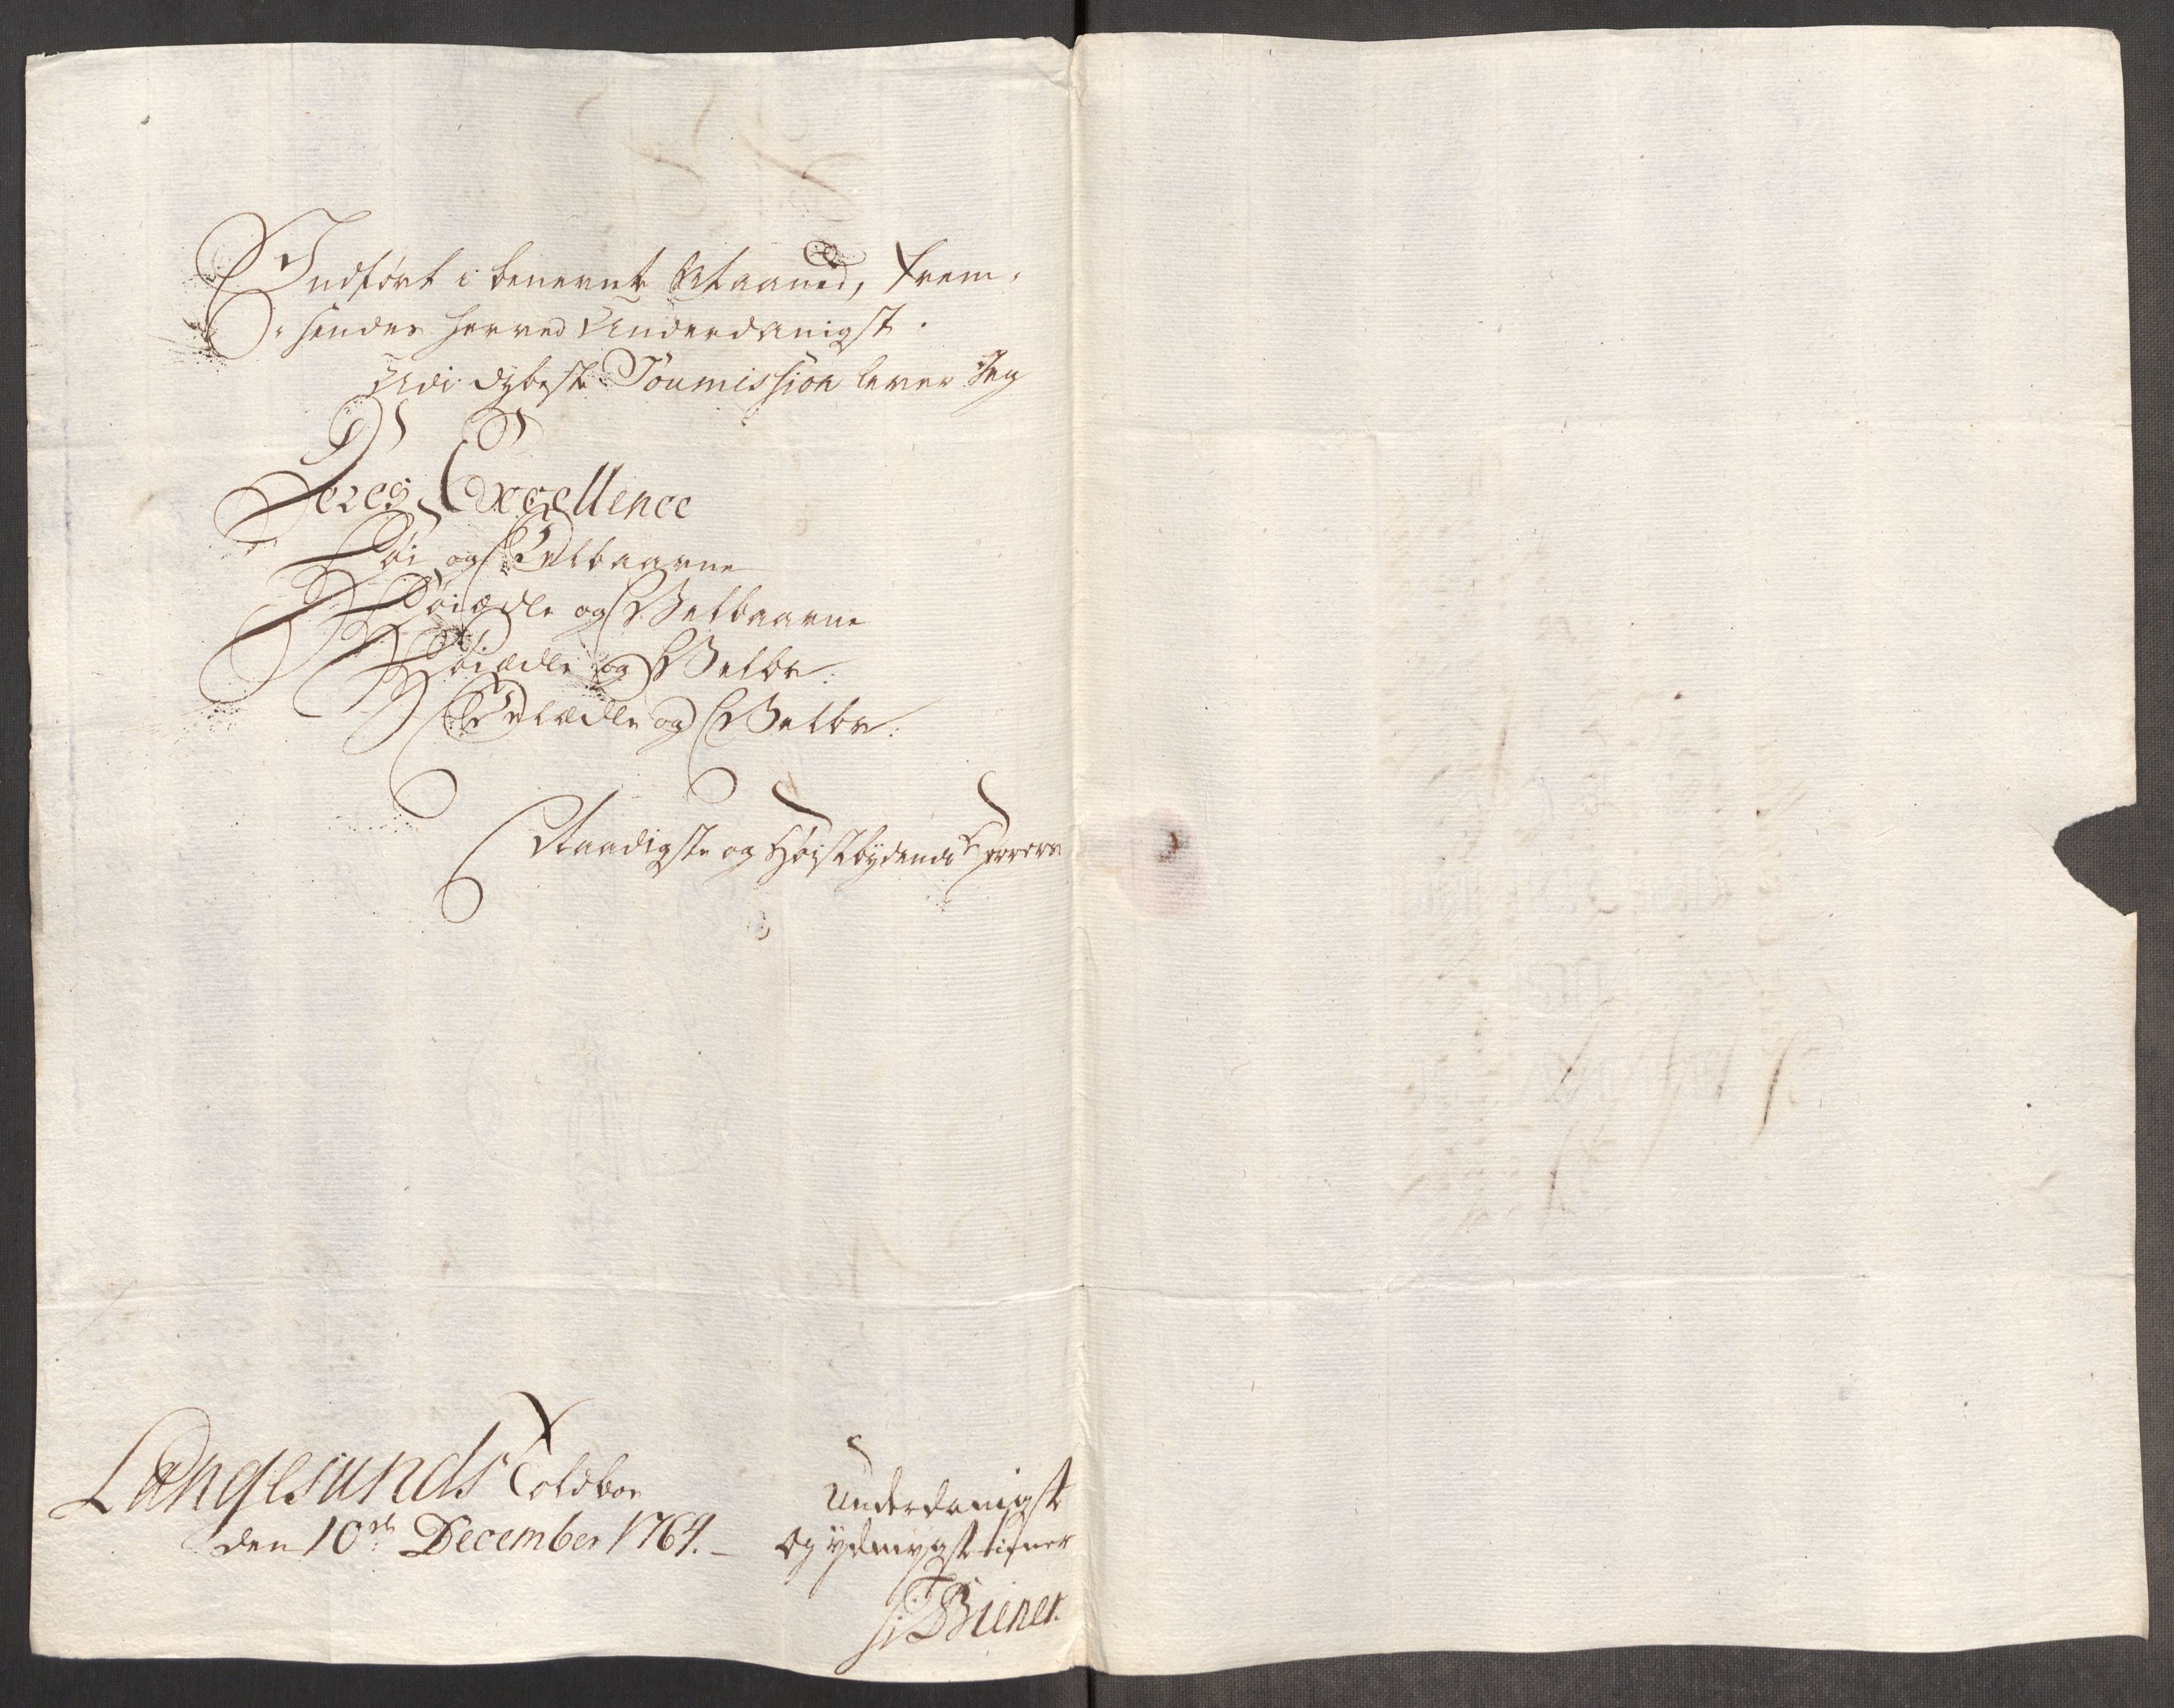 Indført i benevnte Maaned, frem¬
sendes herved Underdanigst.
Udi dybeste Soumission lever Jeg
Deres Excellence
Høi og Velbaarne
Høiædle og Velbaarne
Høiædle og Velbr:
Velædle og Velbr:
Naadigste og Høistbydende Herrers
Langesunds Toldboe
den 10de December 1764.
Underdanigst
og ydmygst tiener
Biener